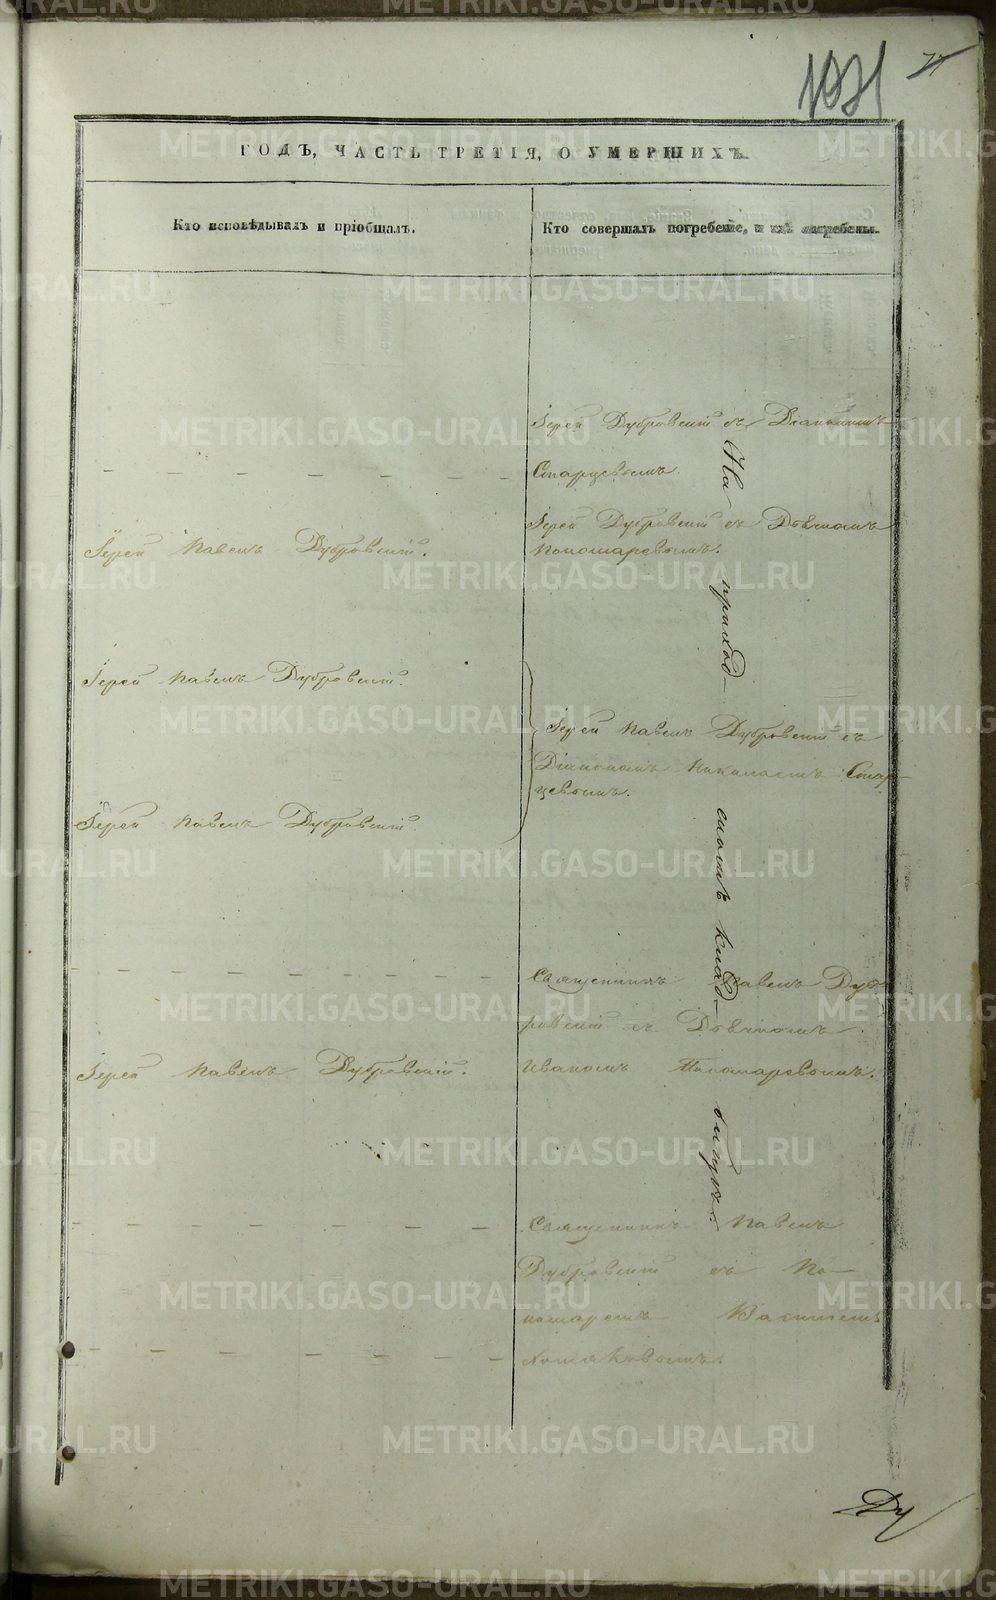 1071
ГОДЪ, ЧАСТЬ ТРЕТІЯ, О УМЕРШИХЪ.
Кто исповѣдывалъ и пріобщалъ.
Кто совершалъ погребеніе, и гдѣ погребены.
Іерей Дубровскій съ Діакономъ
Старцевымъ.
Іерей Павелъ Дубровскій.
Іерей Дубровскій съ Дьячкомъ
Пономаревымъ.
Іерей Павелъ Дубровскій.
Іерей Павелъ Дубровскій съ
Діакономъ Николаемъ Стар-
цевымъ.
Іерей Павелъ Дубровскій.
Священникъ Павелъ Дуб-
ровскій съ Дьячкомъ
Іерей Павелъ Дубровскій.
Иваномъ Пономаревымъ.
Священникъ Павелъ
Дубровскій съ По-
номаремъ Василіемъ
Хомяковымъ.
На приход-
скомъ клад-
бищѣ.
Ду
METRIKI.GASO-URAL.RU